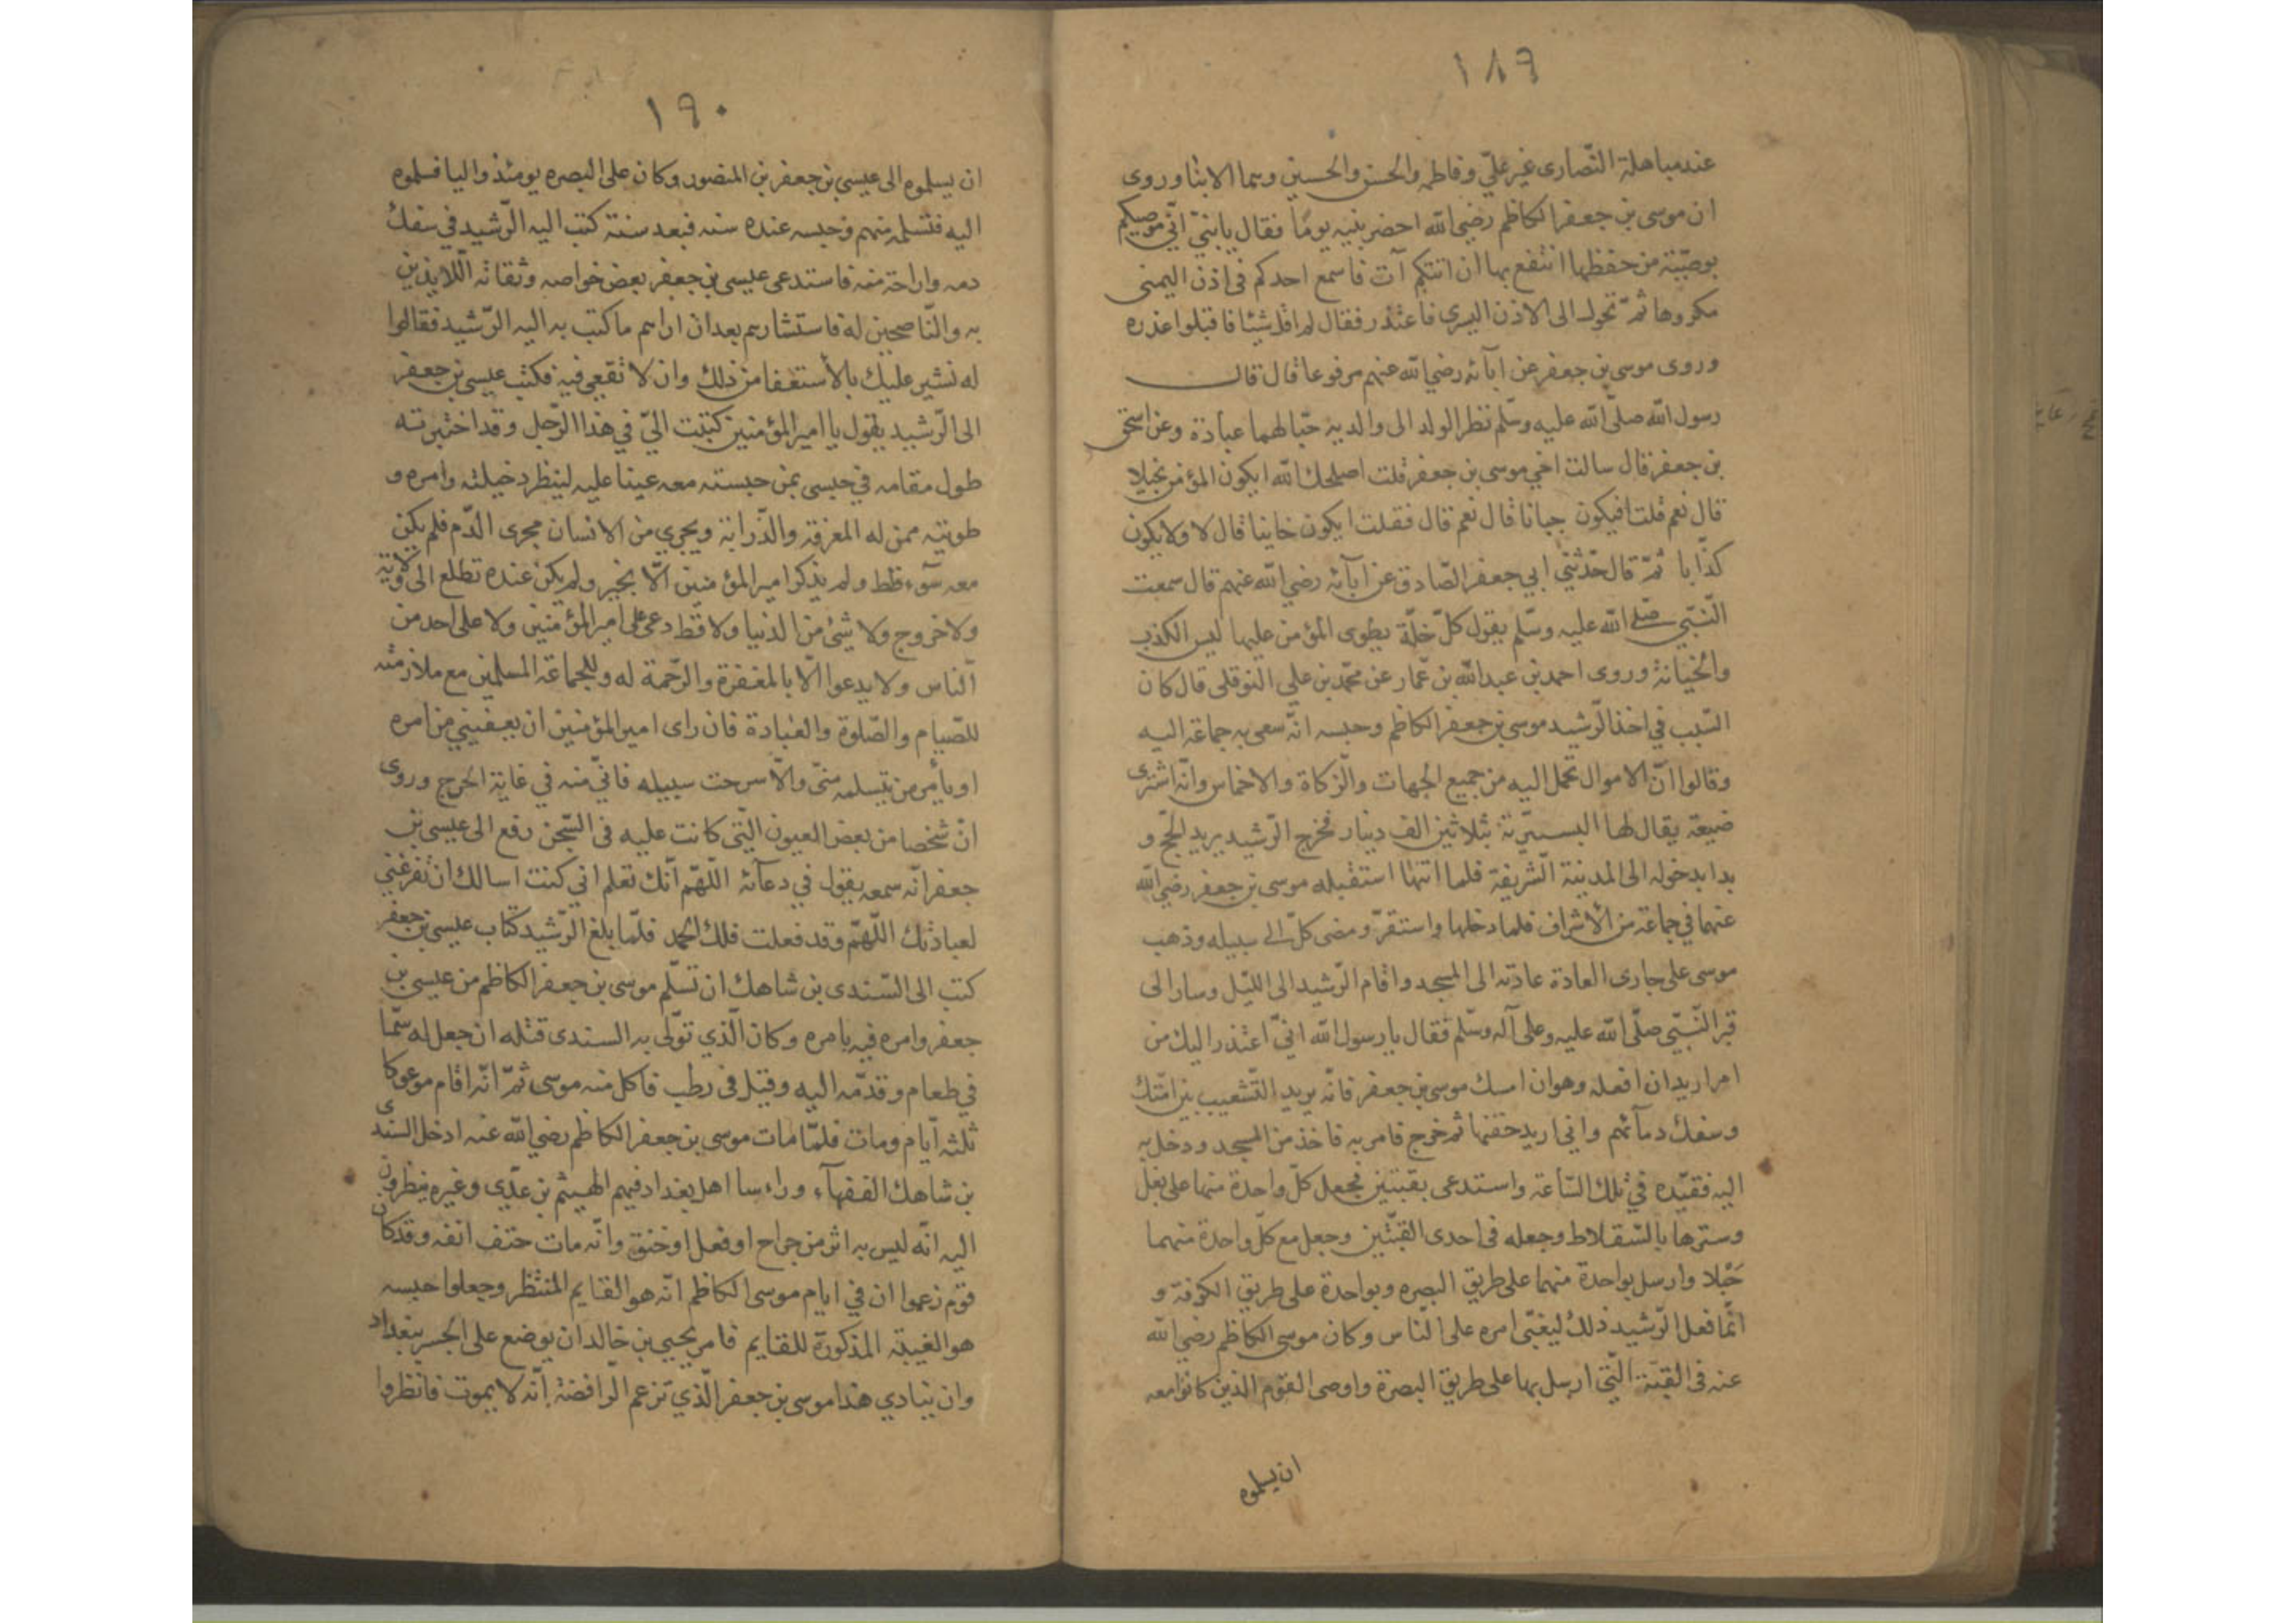 ١٨٩
عند مباهلة النّصارى غير عليّ وفاطمه والحسن والحسين وهما الابنا وروى
ان موسى بن جعفر الكاظم رضي الله احضر بنيه يومًا فقال يا بنيّ انّي موصيكم
بوصيّة من حفظها انتفع بها ان اتتكم آت فاسمع احدكم فى اذن اليمنى
مكروها ثمّ تحول الى الاذن اليسرى فاعتذر فقال لم اقل شيئا فاقبلوا عذره
وروى موسى بن جعفر عن ابآئه رضي الله عنهم مرفوعا قال قال
رسول الله صلّى الله عليه وسلّم نظر الولد الى والديه حبّا لهما عبادة وعن اسحق
بن جعفر قال سالت اخي موسى بن جعفر قلت اصلحك الله ايكون المؤمن بخيلا
قال نعم قلت افيكون جبانا قال نعم قال فقلت ايكون خاينا قال لا ولا يكون
كذّابا ثمّ قال حدّثني ابي جعفر الصّادق عن ابآئه رضي الله عنهم قال سمعت
النّبيّ صلى الله عليه وسلّم يقول كلّ خلّة يطوى المؤمن عليها ليس الكذب
والخيانة وروى احمد بن عبد الله بن عمّار عن محمّد بن علي النوقلى قال كان
السّبب في اخذ الرّشيد موسى بن جعفر الكاظم وحبسه انّه سعى به جماعة اليه
وقالوا انّ الاموال تحمل اليه من جميع الجهات والزّكاة والاخماس وانّه اشترى
ضيعة يقال لها البسريّة بثلاثين الف دينار فخرج الرّشيد يريد الحجّ و
بدا بدخوله الى المدينة الشّريفة فلما اتنها استقبله موسى بن جعفر رضي الله
عنهما في جماعة من الأشراف فلما دخلها واستقرّ ومضى كلّ الى سبيله وذهب
موسى على جارى العادة عادته الى المسجد واقام الرّشيد الى اللّيل وسار الى
قبر النّبيّ صلّى الله عليه وعلى آله وسلّم فقال يا رسول الله انيّ اعتذر اليك من
امر اريد ان افعله وهو ان امسك موسى بن جعفر فانّه يريد التّشعيب بين امّتك
وسفك دمآئهم واني اريد حقنها ثم خرج فامر به فاخذ من المسجد ودخل به
اليه فقيّده في تلك السّاعة واستدعى بقبّتين فجعل كلّ واحدة منها على بغل
وسترها بالسّقلاط وجعله فى احدى القبّتين وجعل مع كلّ واحدة منهما
خَيْلا وارسل بواحدة منهما على طريق البصره وبواحدة على طريق الكوفة و
انّما فعل الرّشيد ذلك ليغبّى امره على النّاس وكان موسى الكاظم رضي الله
عنه فى القبّة الّتي ارسل بها على طريق البصرة واوصى القوم الذين كانوا معه
ان يسلموه
١٩٠
ان يسلموه الى عيسى بن جعفر بن المنصور وكان على البصره يومئذ واليا فسلموه
اليه فتسلمه منهم وحبسه عنده سنه فبعد سنة كتب اليه الرّشيد في سفك
دمه واراحته منه فاستدعى عيسى بن جعفر بعض خواصه وثقاته اللايذين
به والنّاصحين له فاستشارهم بعد ان اراهم ما كتب به اليه الرّشيد فقالوا
له نشير عليك بالأستعفا من ذلك وان لا تقع فيه فكتب عيسى بن جعفر
الى الرّشيد يقول يا امير المؤمنين كتبت اليّ في هذا الرّجل وقد اختبرته
طول مقامه في حبسى بمن حبسته معه عينا عليه لينظر دخيلته وامره و
طويته ممن له المعرفة والدّراية ويجري من الانسان مجرى الدّم فلم يكن
معه سوء قط ولم يذكر امير المؤمنين الّا بخير ولم يكن عنده تطلع الى ولاية
ولا خروج ولا شئ من الدنيا ولا قط دعى على امير المؤمنين ولا على احد من
النّاس ولا يدعوا الّا بالمغفرة والرّحمة له وللجماعة المسلمين مع ملازمته
للصّيام والصّلوة والعبادة فان راى امير المؤمنين ان يعفيني من امره
او يأمر من يتسلمه منّي والّا سرحت سبيله فانيّ منه في غاية الحرج وروى
انّ شخصا من بعض العيون الّتي كانت عليه فى السّجن رفع الى عيسى بن
جعفر انّه سمعه يقول في دعآئه اللّهمّ انّك تعلم اني كنت اسالك ان تفرغني
لعبادتك اللّهمّ وقد فعلت فلك الحمد فلمّا بلغ الرّشيد كتاب عيسى بن جعفر
كتب الى السّندى بن شاهك ان تسلّم موسى بن جعفر الكاظم من عيسى بن
جعفر وامره فيه بامره وكان الّذي تولّى به السندى قتله ان جعل له سمّا
في طعام وقدّمه اليه وقيل فى رطب فاكل منه موسى ثمّ انّه اقام موعوكا
ثلثه ايّام ومات فلمّا مات موسى بن جعفر الكاظم رضي الله عنه ادخل السندى
بن شاهك الفقهآء وراءسا اهل بغداد فيهم الهيثم بن عدّي وغيره ينظرون
اليه انّه ليس به اثر من جراح او فعل او خنق وانّه مات حتف انفه وقد كان
قوم زعموا ان في ايام موسى الكاظم انّه هو القايم المنتظر وجعلوا حبسه
هو الغيبة المذكورة للقايم فامر يحيى بن خالد ان يوضع على الجسر ببغداد
وان ينادي هذا موسى بن جعفر الّذي تزعم الرّافضة انّه لا يموت فانظروا